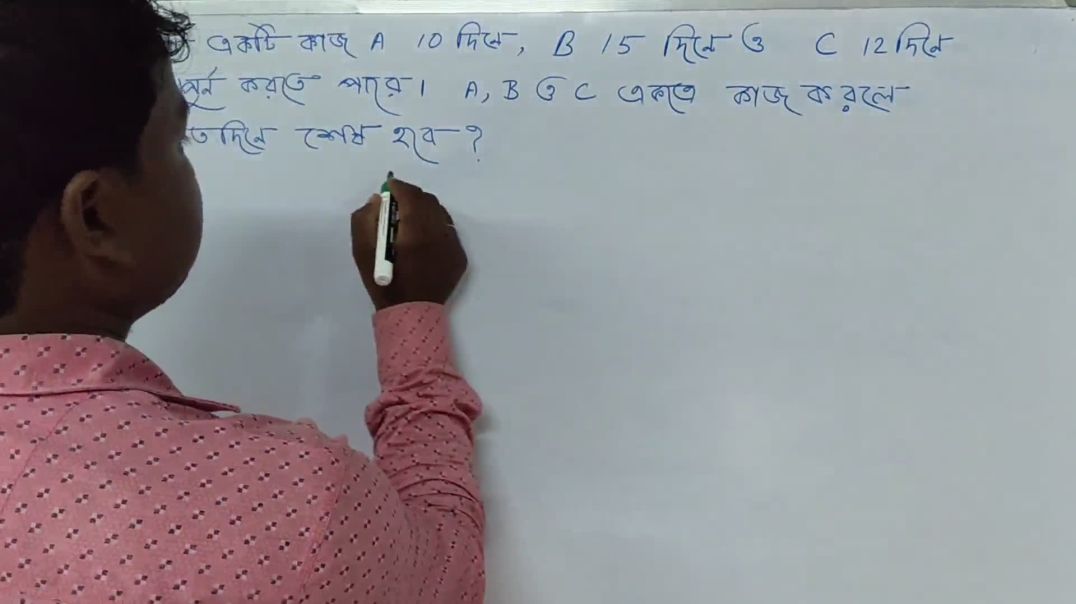 একটি কাজ A 10 দিনে, B 15 দিনে ও C 12 দিনে
পূর্ন করতে পারে। A, B ও C একত্রে কাজ করলে
তদিনে শেষ হবে ?